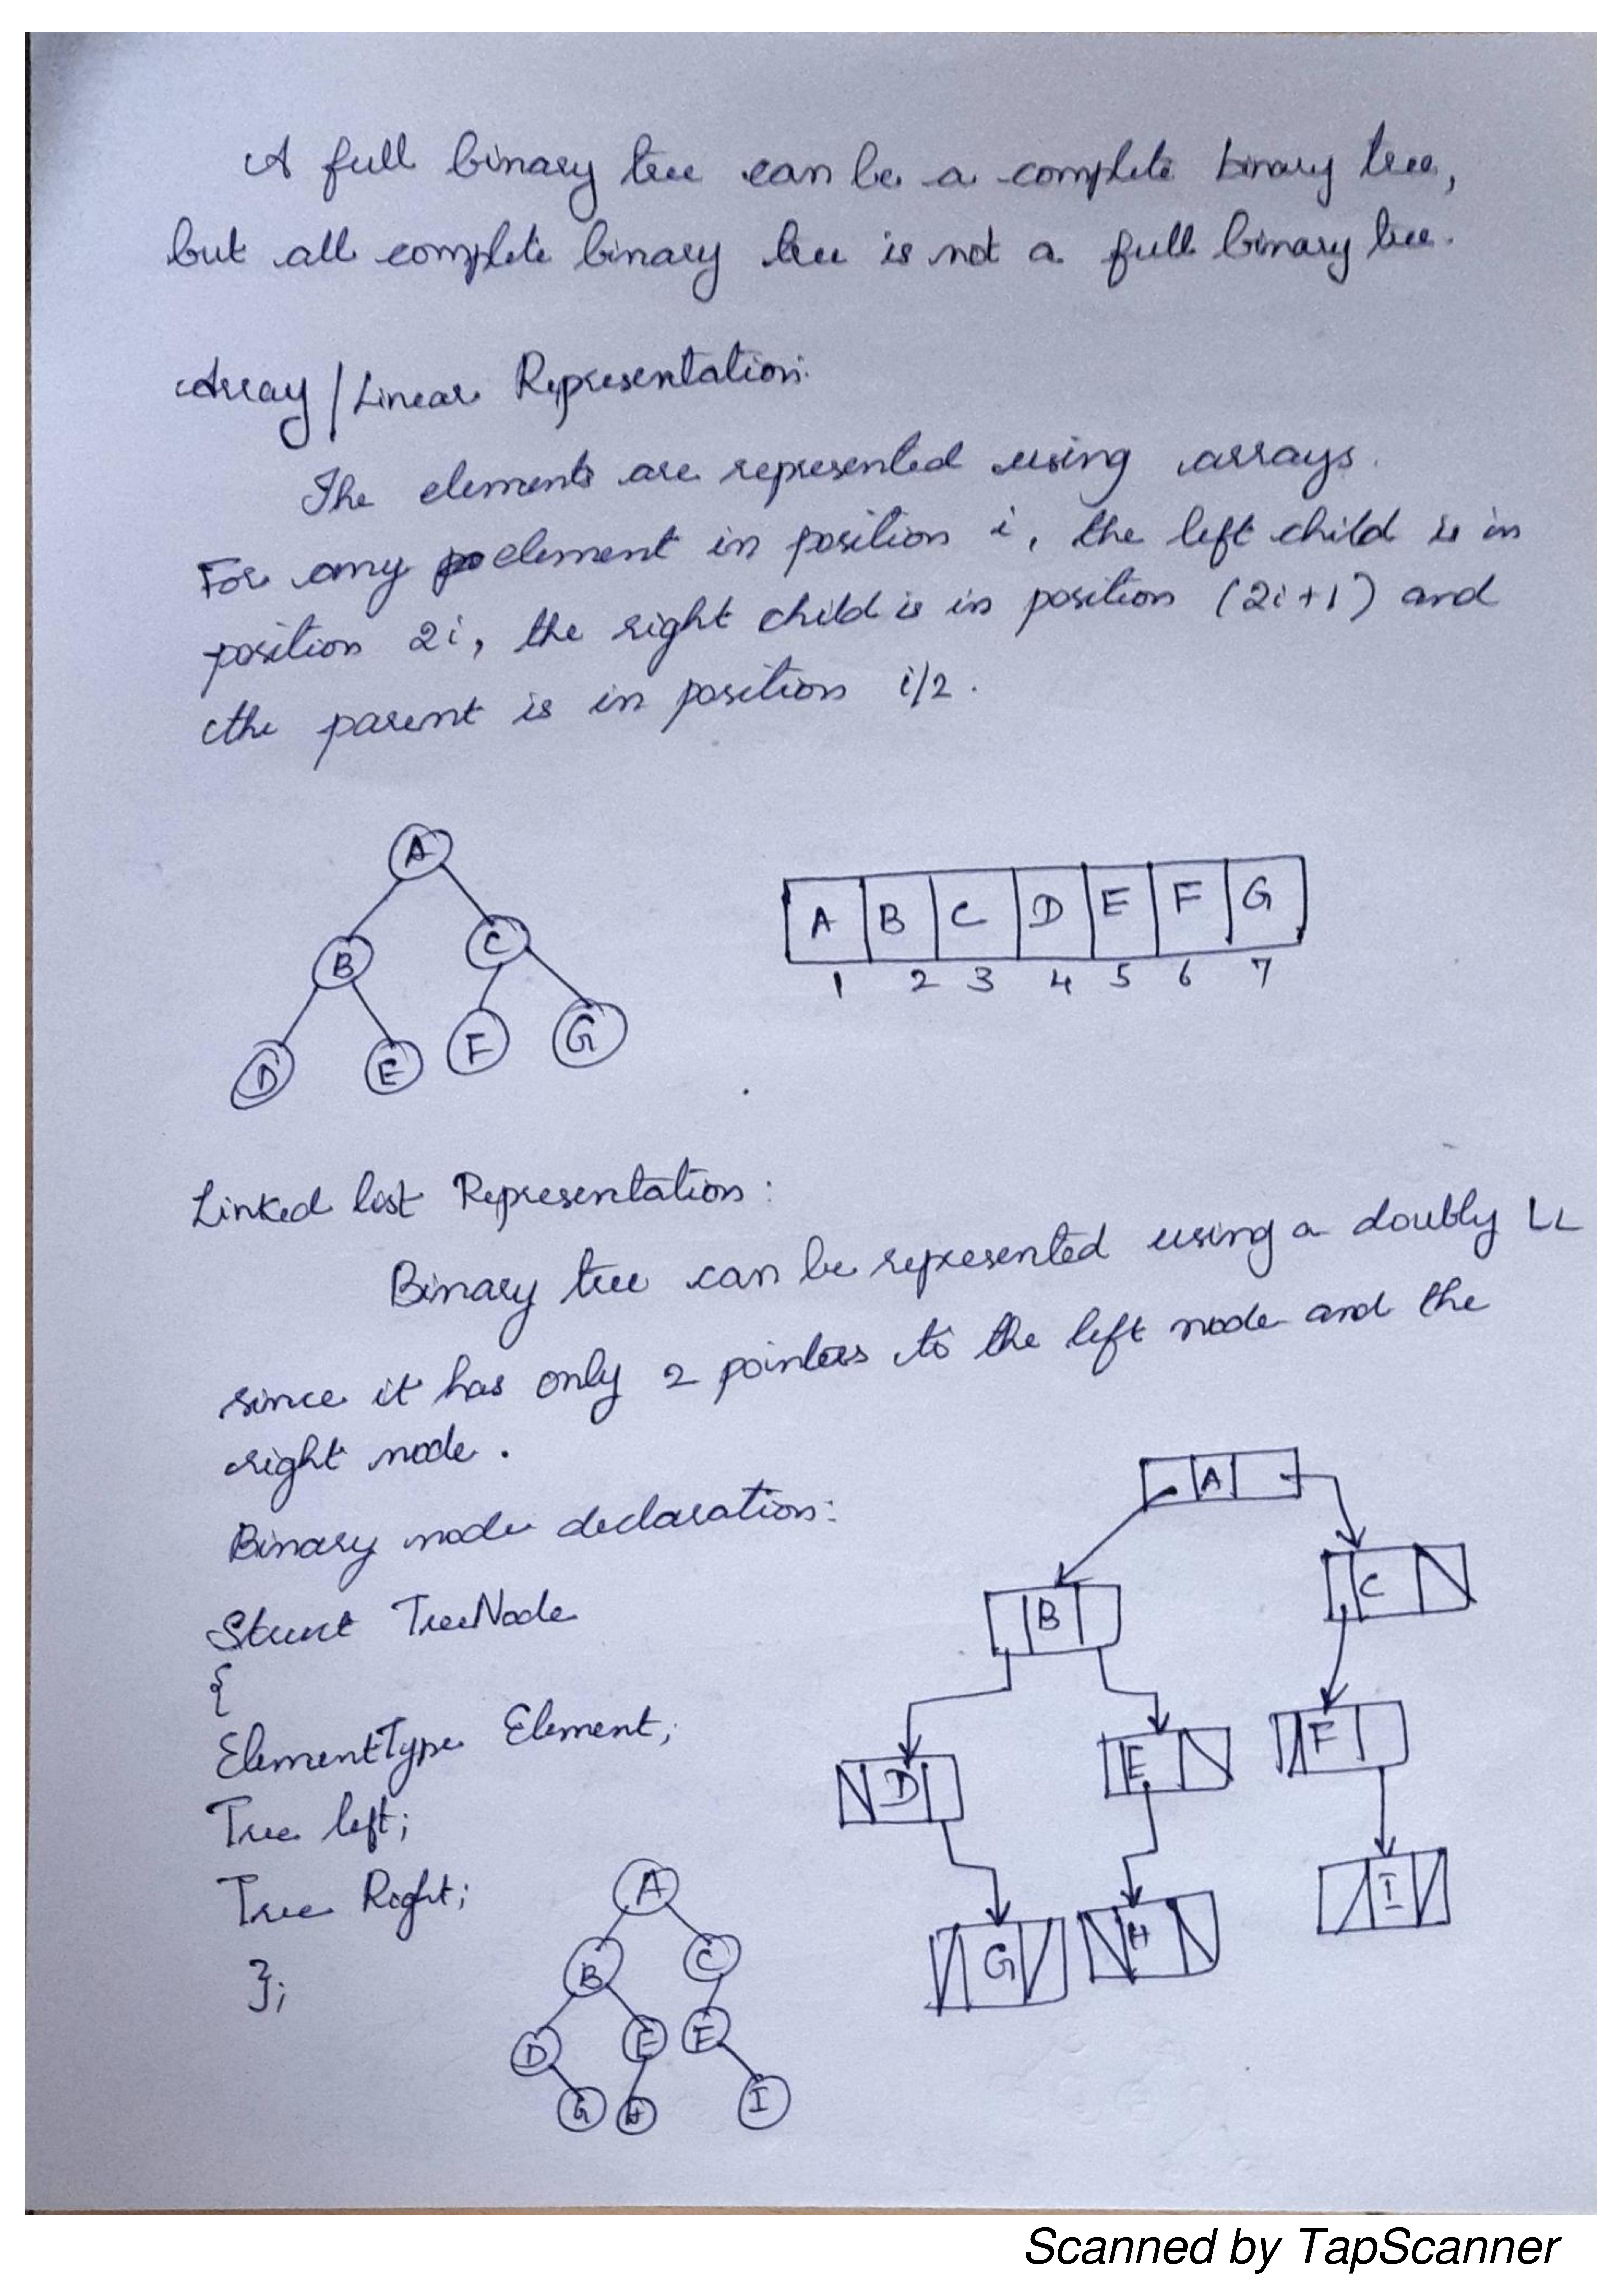 A full binary tree can be a complete binary tree,
but all complete binary tree is not a full binary tree.
Array / Linear Representation:
The elements are represented using arrays.
For any element in position i, the left child is in
position 2i, the right child is in position (2i+1) and
the parent is in position i/2.
A
B C
D E F G
A B C D E F G
1 2 3 4 5 6 7
Linked list Representation:
Binary tree can be represented using a doubly LL
since it has only 2 pointers to the left node and the
right node.
Binary node declaration:
Struct TreeNode
{
ElementType Element;
Tree left;
Tree Right;
};
A
B C
D E F
G H I
A
B C
D E F
G H I
Scanned by TapScanner